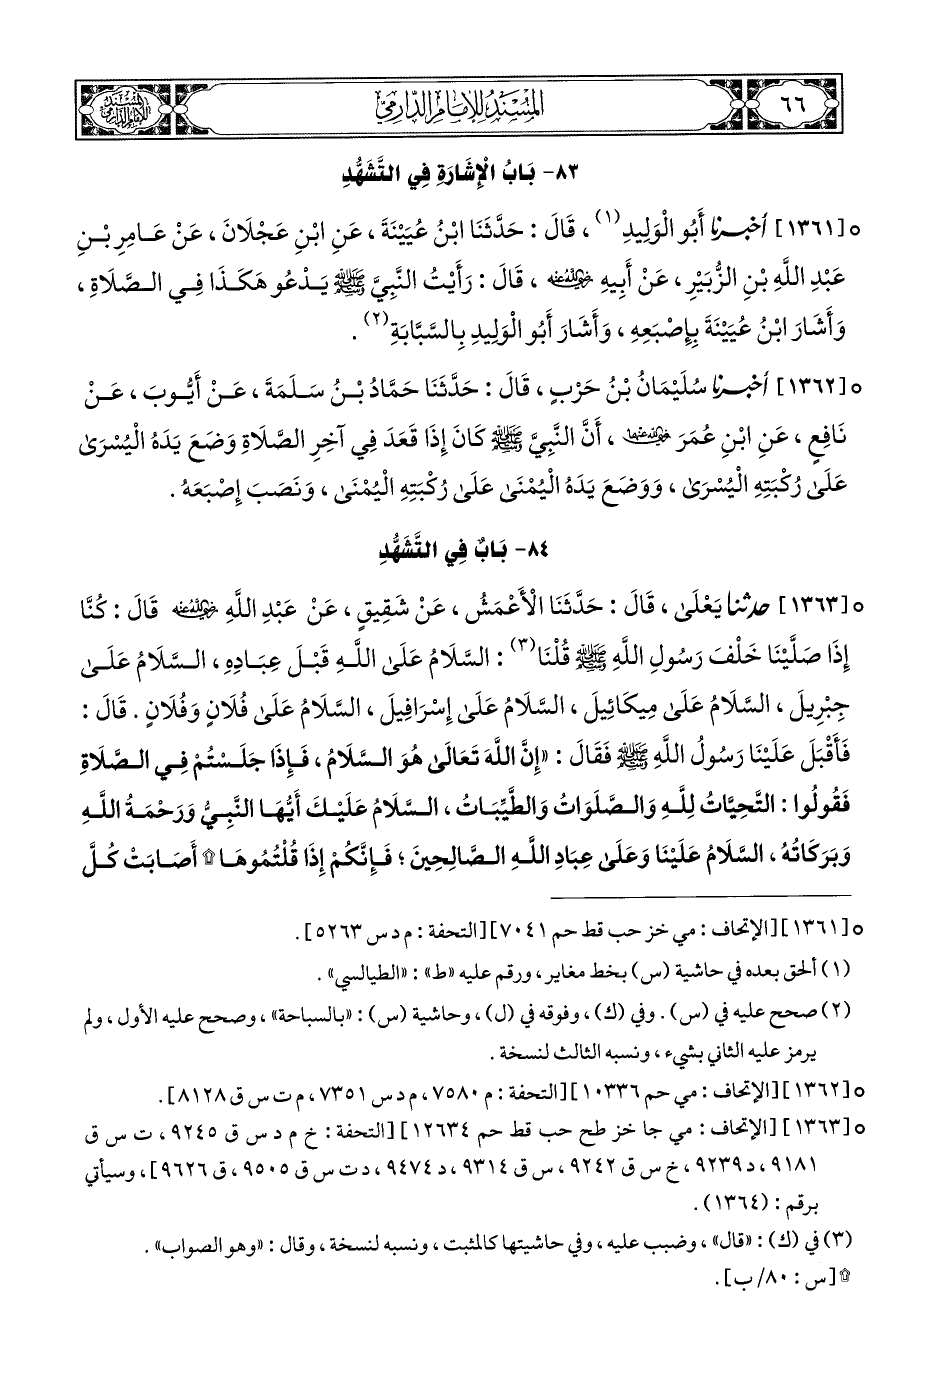 المسند للإمام الدارمي
٦٦
المسند للإمام الدارمي
٨٣- بَابُ الْإِشَارَةِ فِي التَّشَهُّدِ
○ [١٣٦١] أخبرنا أَبُو الْوَلِيدِ(١)، قَالَ : حَدَّثَنَا ابْنُ عُيَيْنَةَ ، عَنِ ابْنِ عَجْلَانَ ، عَنْ عَامِرِ بْنِ
عَبْدِ اللَّهِ بْنِ الزُّبَيْرِ ، عَنْ أَبِيهِ رضي الله عنه ، قَالَ : رَأَيْتُ النَّبِيَّ ﷺ يَدْعُو هَكَذَا فِي الصَّلَاةِ ،
وَأَشَارَ ابْنُ عُيَيْنَةَ بِإِصْبَعِهِ ، وَأَشَارَ أَبُو الْوَلِيدِ بِالسَّبَّابَةِ(٢) .
○ [١٣٦٢] أخبرنا سُلَيْمَانُ بْنُ حَرْبٍ ، قَالَ : حَدَّثَنَا حَمَّادُ بْنُ سَلَمَةَ ، عَنْ أَيُّوبَ ، عَنْ
نَافِعٍ ، عَنِ ابْنِ عُمَرَ رضي الله عنهما ، أَنَّ النَّبِيَّ ﷺ كَانَ إِذَا قَعَدَ فِي آخِرِ الصَّلَاةِ وَضَعَ يَدَهُ الْيُسْرَىٰ
عَلَىٰ رُكْبَتِهِ الْيُسْرَىٰ ، وَوَضَعَ يَدَهُ الْيُمْنَىٰ عَلَىٰ رُكْبَتِهِ الْيُمْنَىٰ ، وَنَصَبَ إِصْبَعَهُ .
٨٤- بَابٌ فِي التَّشَهُّدِ
○ [١٣٦٣] حدثنا يَعْلَىٰ ، قَالَ : حَدَّثَنَا الْأَعْمَشُ ، عَنْ شَقِيقٍ ، عَنْ عَبْدِ اللَّهِ رضي الله عنه قَالَ : كُنَّا
إِذَا صَلَّيْنَا خَلْفَ رَسُولِ اللَّهِ ﷺ قُلْنَا(٣) : السَّلَامُ عَلَى اللَّهِ قَبْلَ عِبَادِهِ ، السَّلَامُ عَلَىٰ
جِبْرِيلَ ، السَّلَامُ عَلَىٰ مِيكَائِيلَ ، السَّلَامُ عَلَىٰ إِسْرَافِيلَ ، السَّلَامُ عَلَىٰ فُلَانٍ وَفُلَانٍ . قَالَ :
فَأَقْبَلَ عَلَيْنَا رَسُولُ اللَّهِ ﷺ فَقَالَ : «إِنَّ اللَّهَ تَعَالَىٰ هُوَ السَّلَامُ ، فَإِذَا جَلَسْتُمْ فِي الصَّلَاةِ
فَقُولُوا : التَّحِيَّاتُ لِلَّهِ وَالصَّلَوَاتُ وَالطَّيِّبَاتُ ، السَّلَامُ عَلَيْكَ أَيُّهَا النَّبِيُّ وَرَحْمَةُ اللَّهِ
وَبَرَكَاتُهُ ، السَّلَامُ عَلَيْنَا وَعَلَىٰ عِبَادِ اللَّهِ الصَّالِحِينَ ؛ فَإِنَّكُمْ إِذَا قُلْتُمُوهَا ۩ أَصَابَتْ كُلَّ
○ [١٣٦١] [الإتحاف : مي خز حب قط حم ٧٠٤١] [التحفة : م د س ٥٢٦٣] .
(١) ألحق بعده في حاشية (س) بخط مغاير ، ورقم عليه «ط» : «الطيالسي» .
(٢) صحح عليه في (س) . وفي (ك) ، وفوقه في (ل) ، وحاشية (س) : «بالسباحة» ، وصحح عليه الأول ، ولم
يرمز عليه الثاني بشيء ، ونسبه الثالث لنسخة .
○ [١٣٦٢] [الإتحاف : مي حم ١٠٣٣٦] [التحفة : م ٧٥٨٠ ، م د س ٧٣٥١ ، م ت س ق ٨١٢٨] .
○ [١٣٦٣] [الإتحاف : مي جا خز طح حب قط حم ١٢٦٣٤] [التحفة : خ م د س ق ٩٢٤٥ ، ت س ق
٩١٨١ ، د ٩٢٣٩ ، خ س ق ٩٢٤٢ ، س ق ٩٣١٤ ، د ٩٤٧٤ ، د ت س ق ٩٥٠٥ ، ق ٩٦٢٦] ، وسيأتي
برقم : (١٣٦٤) .
(٣) في (ك) : «قال» ، وضبب عليه ، وفي حاشيتها كالمثبت ، ونسبه لنسخة ، وقال : «وهو الصواب» .
۩ [س : ٨٠/ ب] .